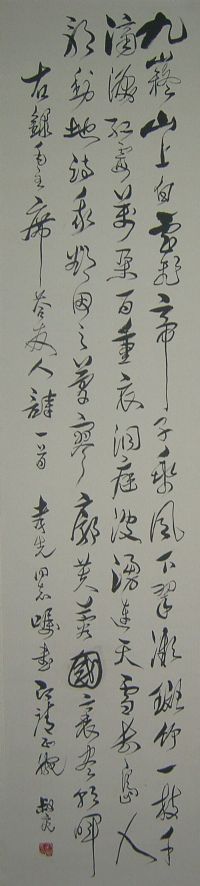 九嶷山上白雲飛帝子乘風下翠微斑竹一枝千
滴淚紅霞萬朵百重衣洞庭波湧連天雪長島人
歌動地詩我欲因之夢寥廓芙蓉國裏盡朝暉
右錄毛主席答友人詩一首 先同志囑書即請正腕 叔亮